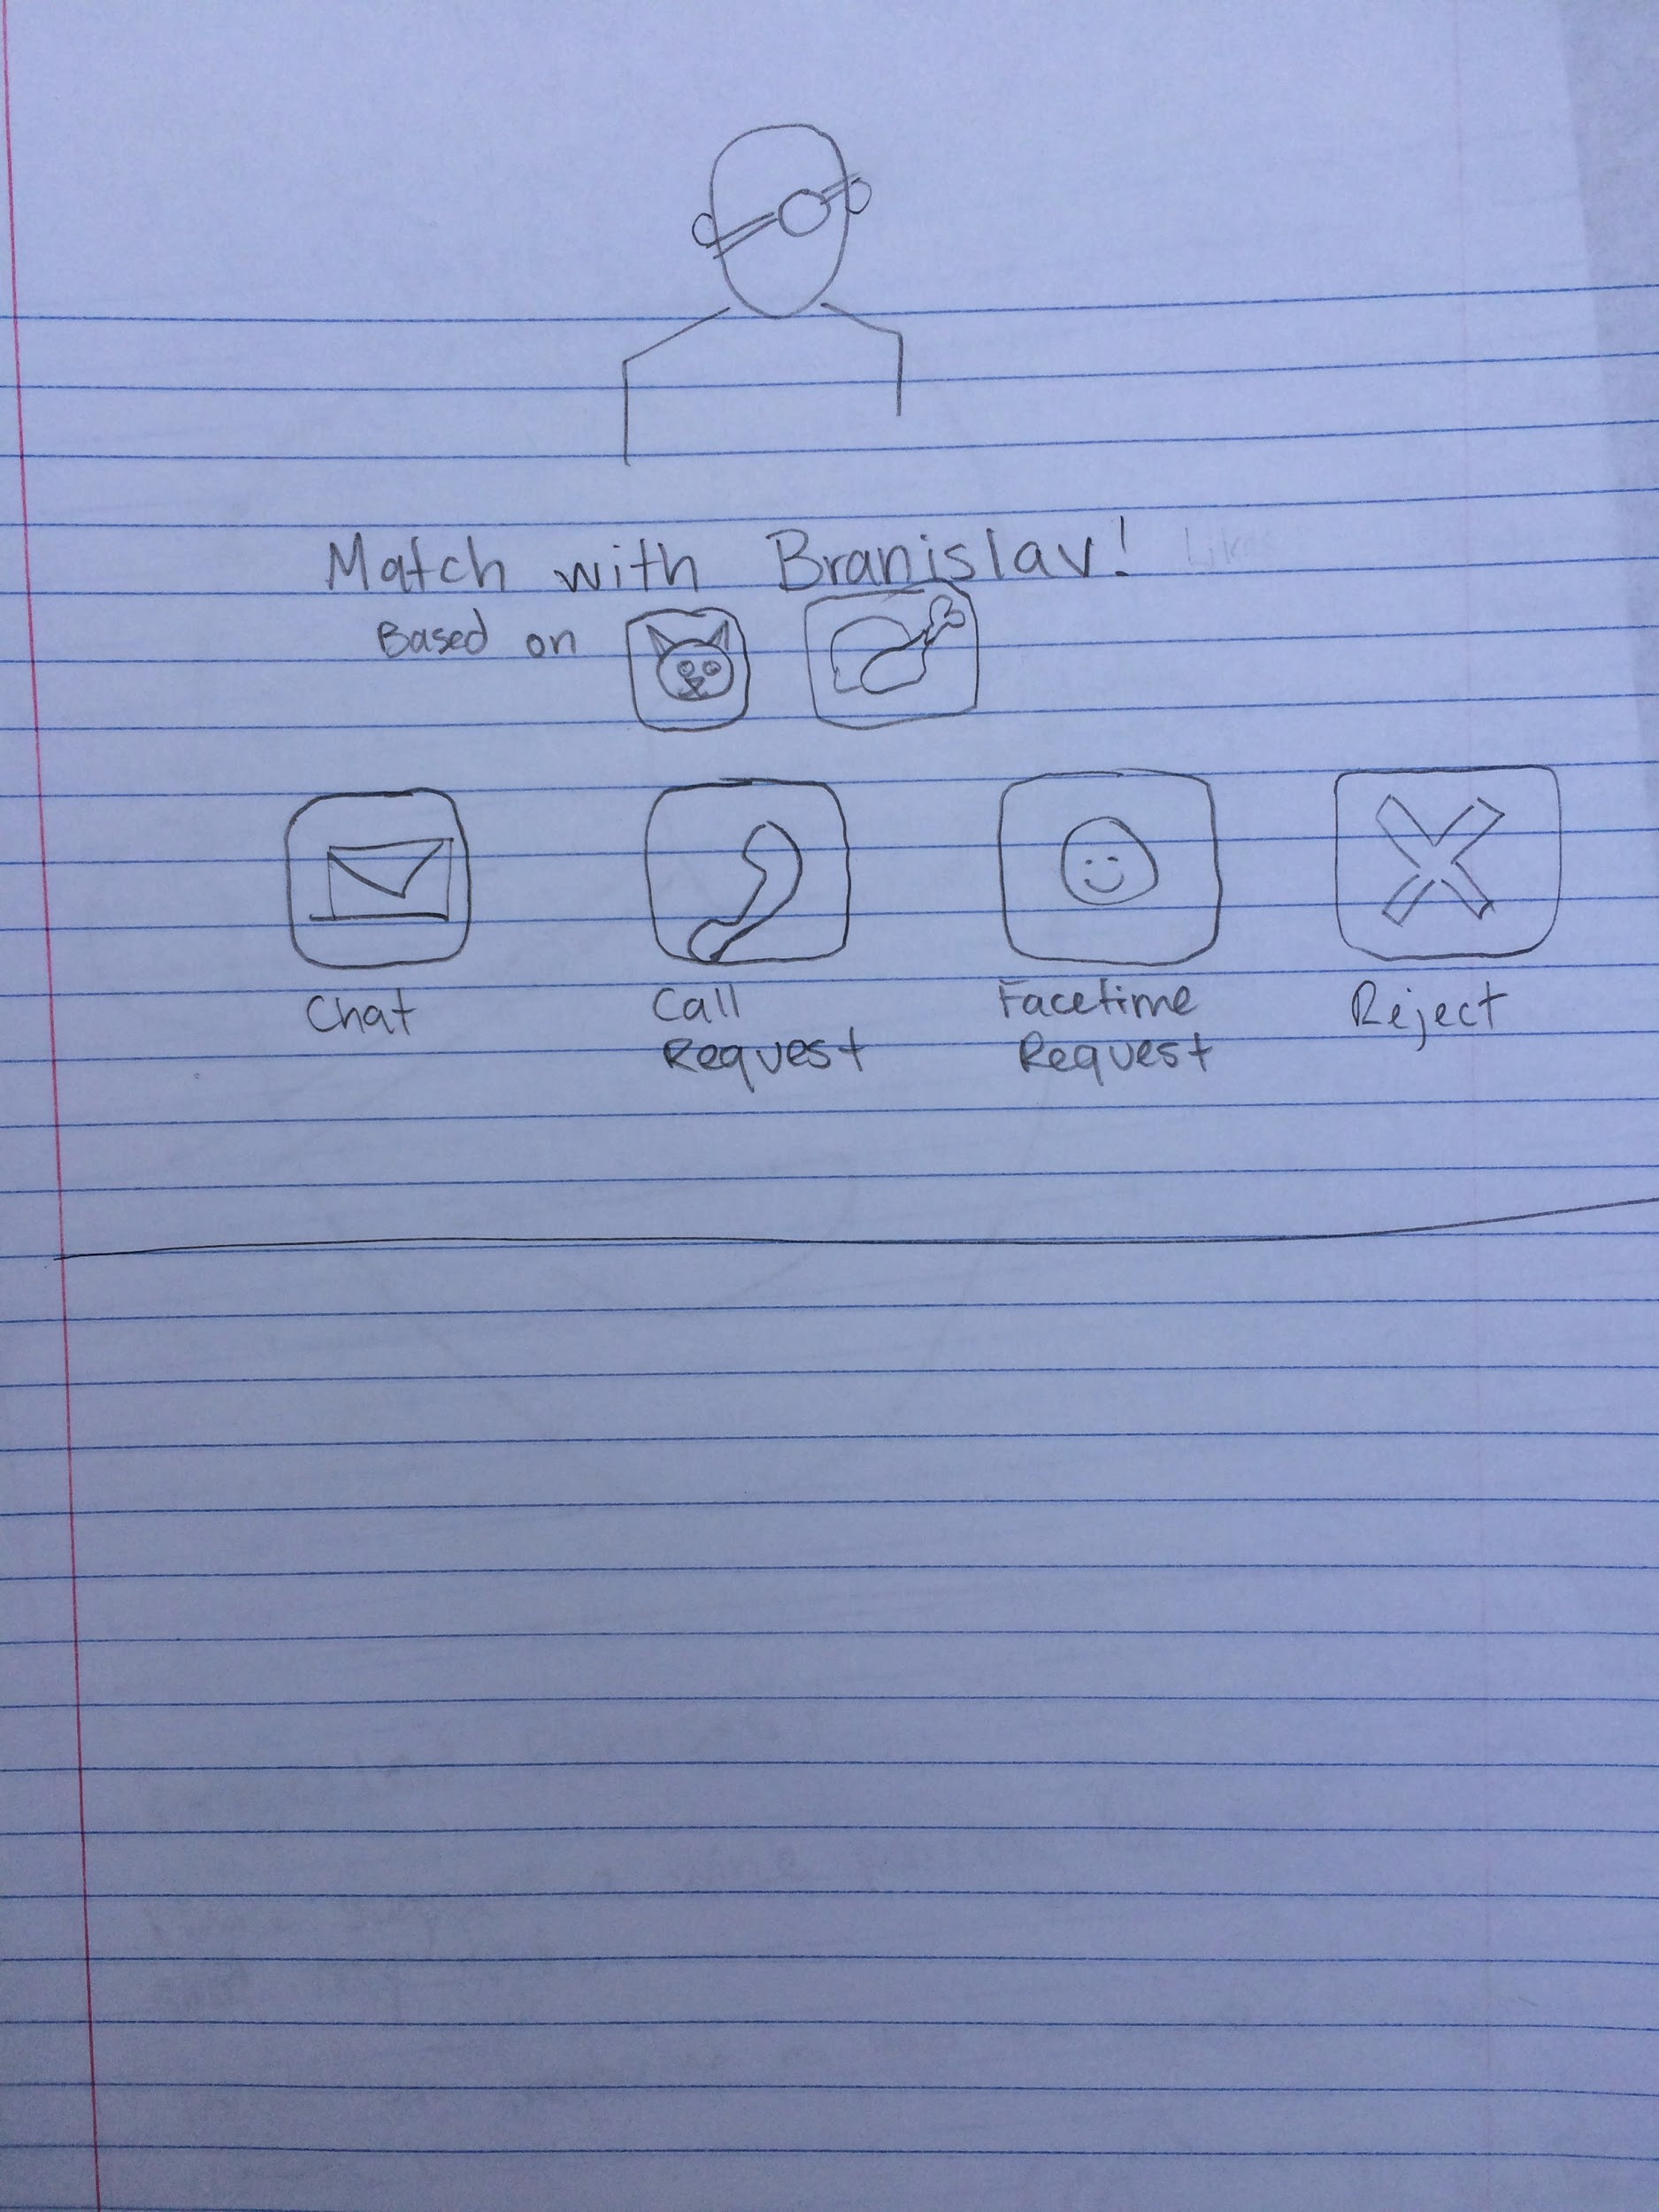 Match with Branislav!
Based on
Chat
Call
Request
Facetime
Request
Reject